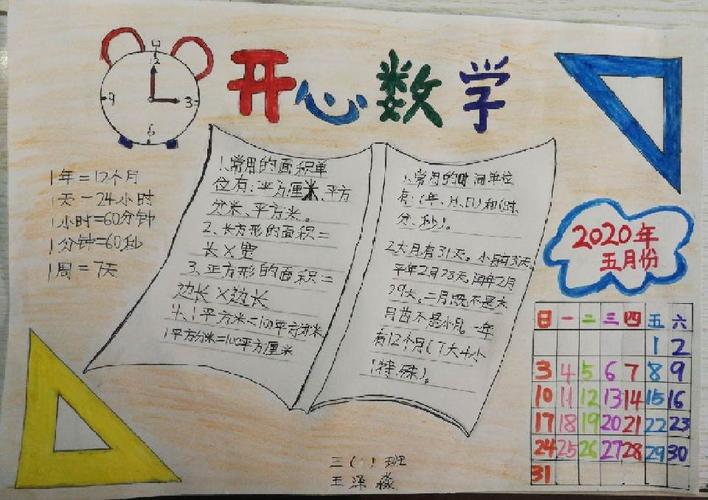 开心数学
12
9
3
6
1年=12个月
1天-24小时
1小时=60分钟
1分钟=60秒
1周=7天
1、常用的面积单
位有:平方厘米、平方
分米、平方米。
2、长方形的面积=
长X宽
3、正方形的面积=
边长X边长
4、1平方米=100平方分米
1平方分米=100平方厘米
1、常用的时间单位
有(年、月、日)和(时
分、秒)。
2大月有31天。小月有30天
平年2月28天,闰年2月
29天。二月既不是大
月省不是小月。一年
有12个月(7大4小
1特殊)。
2020年
五月份
日 一 二 三 四 五 六
1 2
3 4 5 6 7 8 9
10 11 12 13 14 15 16
17 18 19 20 21 22 23
24 25 26 27 28 29 30
31
三(1)班